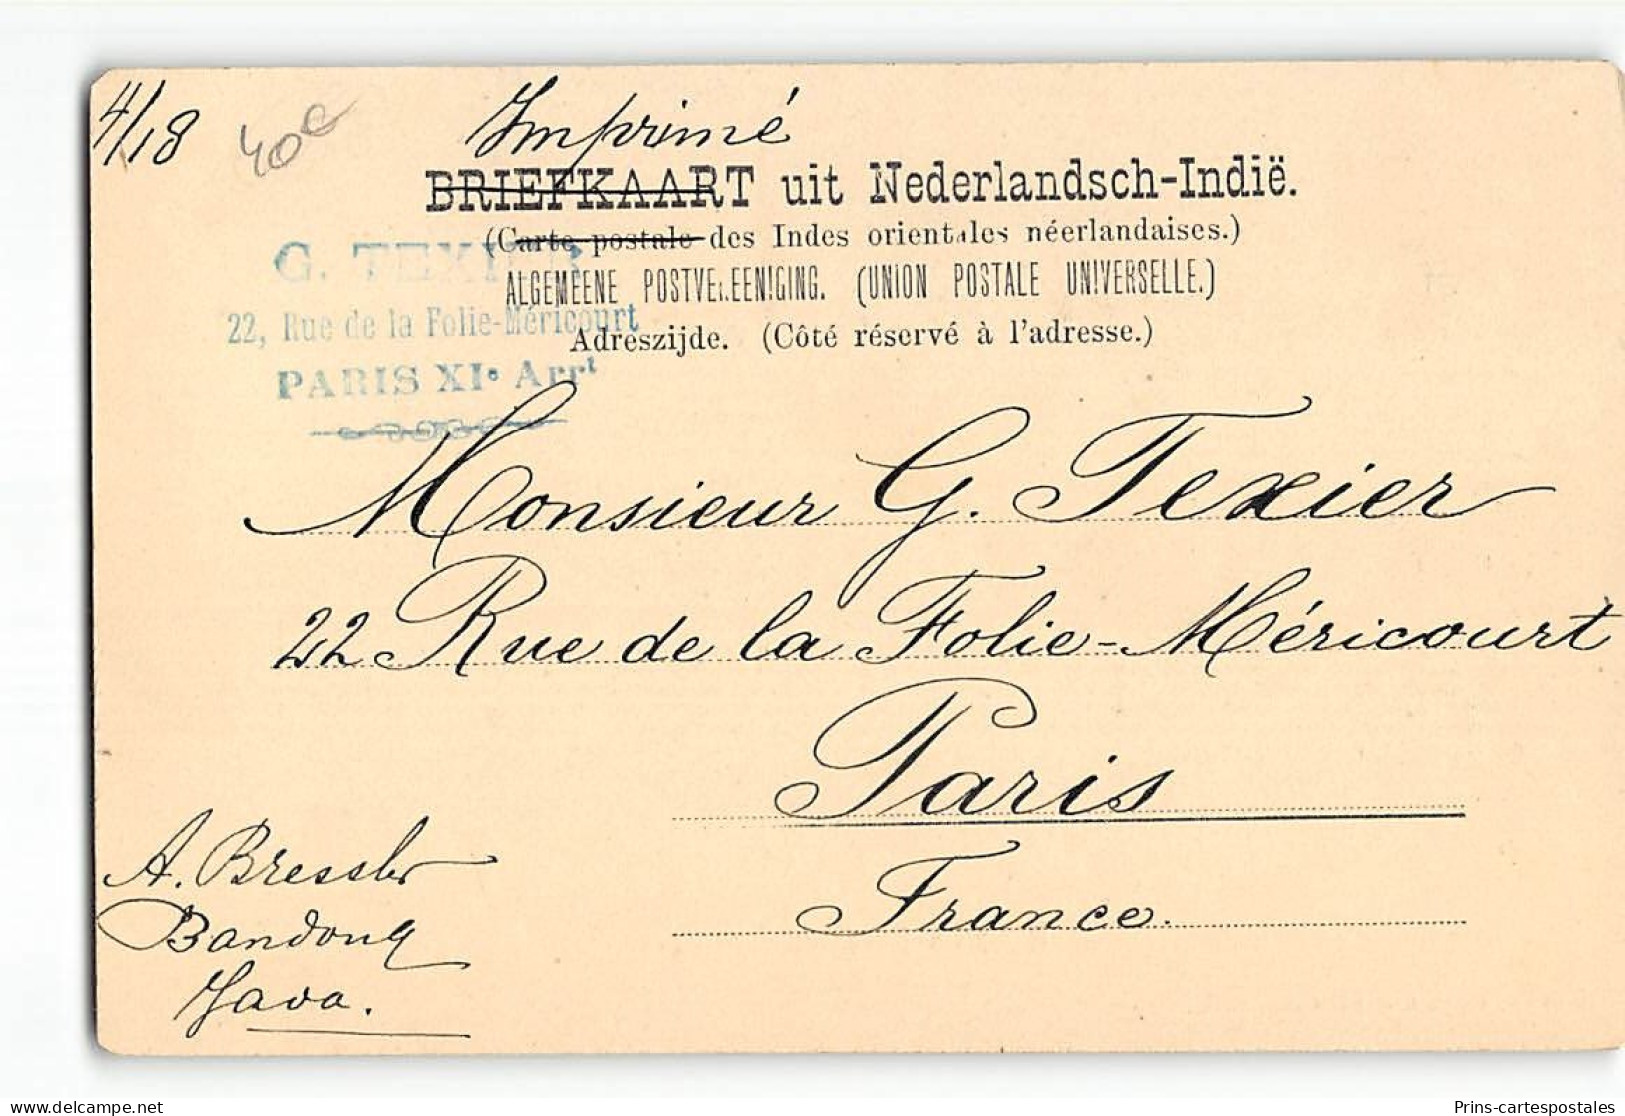 4/18
40€
Imprimé
BRIEFKAART uit Nederlandsch-Indië.
(Carte postale des Indes orientales néerlandaises.)
ALGEMEENE POSTVEREENIGING. (UNION POSTALE UNIVERSELLE.)
Adreszijde. (Côté réservé à l'adresse.)
G. TEXIER
22, Rue de la Folie-Méricourt
PARIS XIe Arrt
Monsieur G. Texier
22 Rue de la Folie-Méricourt
Paris
France.
A. Bressler
Bandong
Java.
delcampe.net
Prins-cartespostales